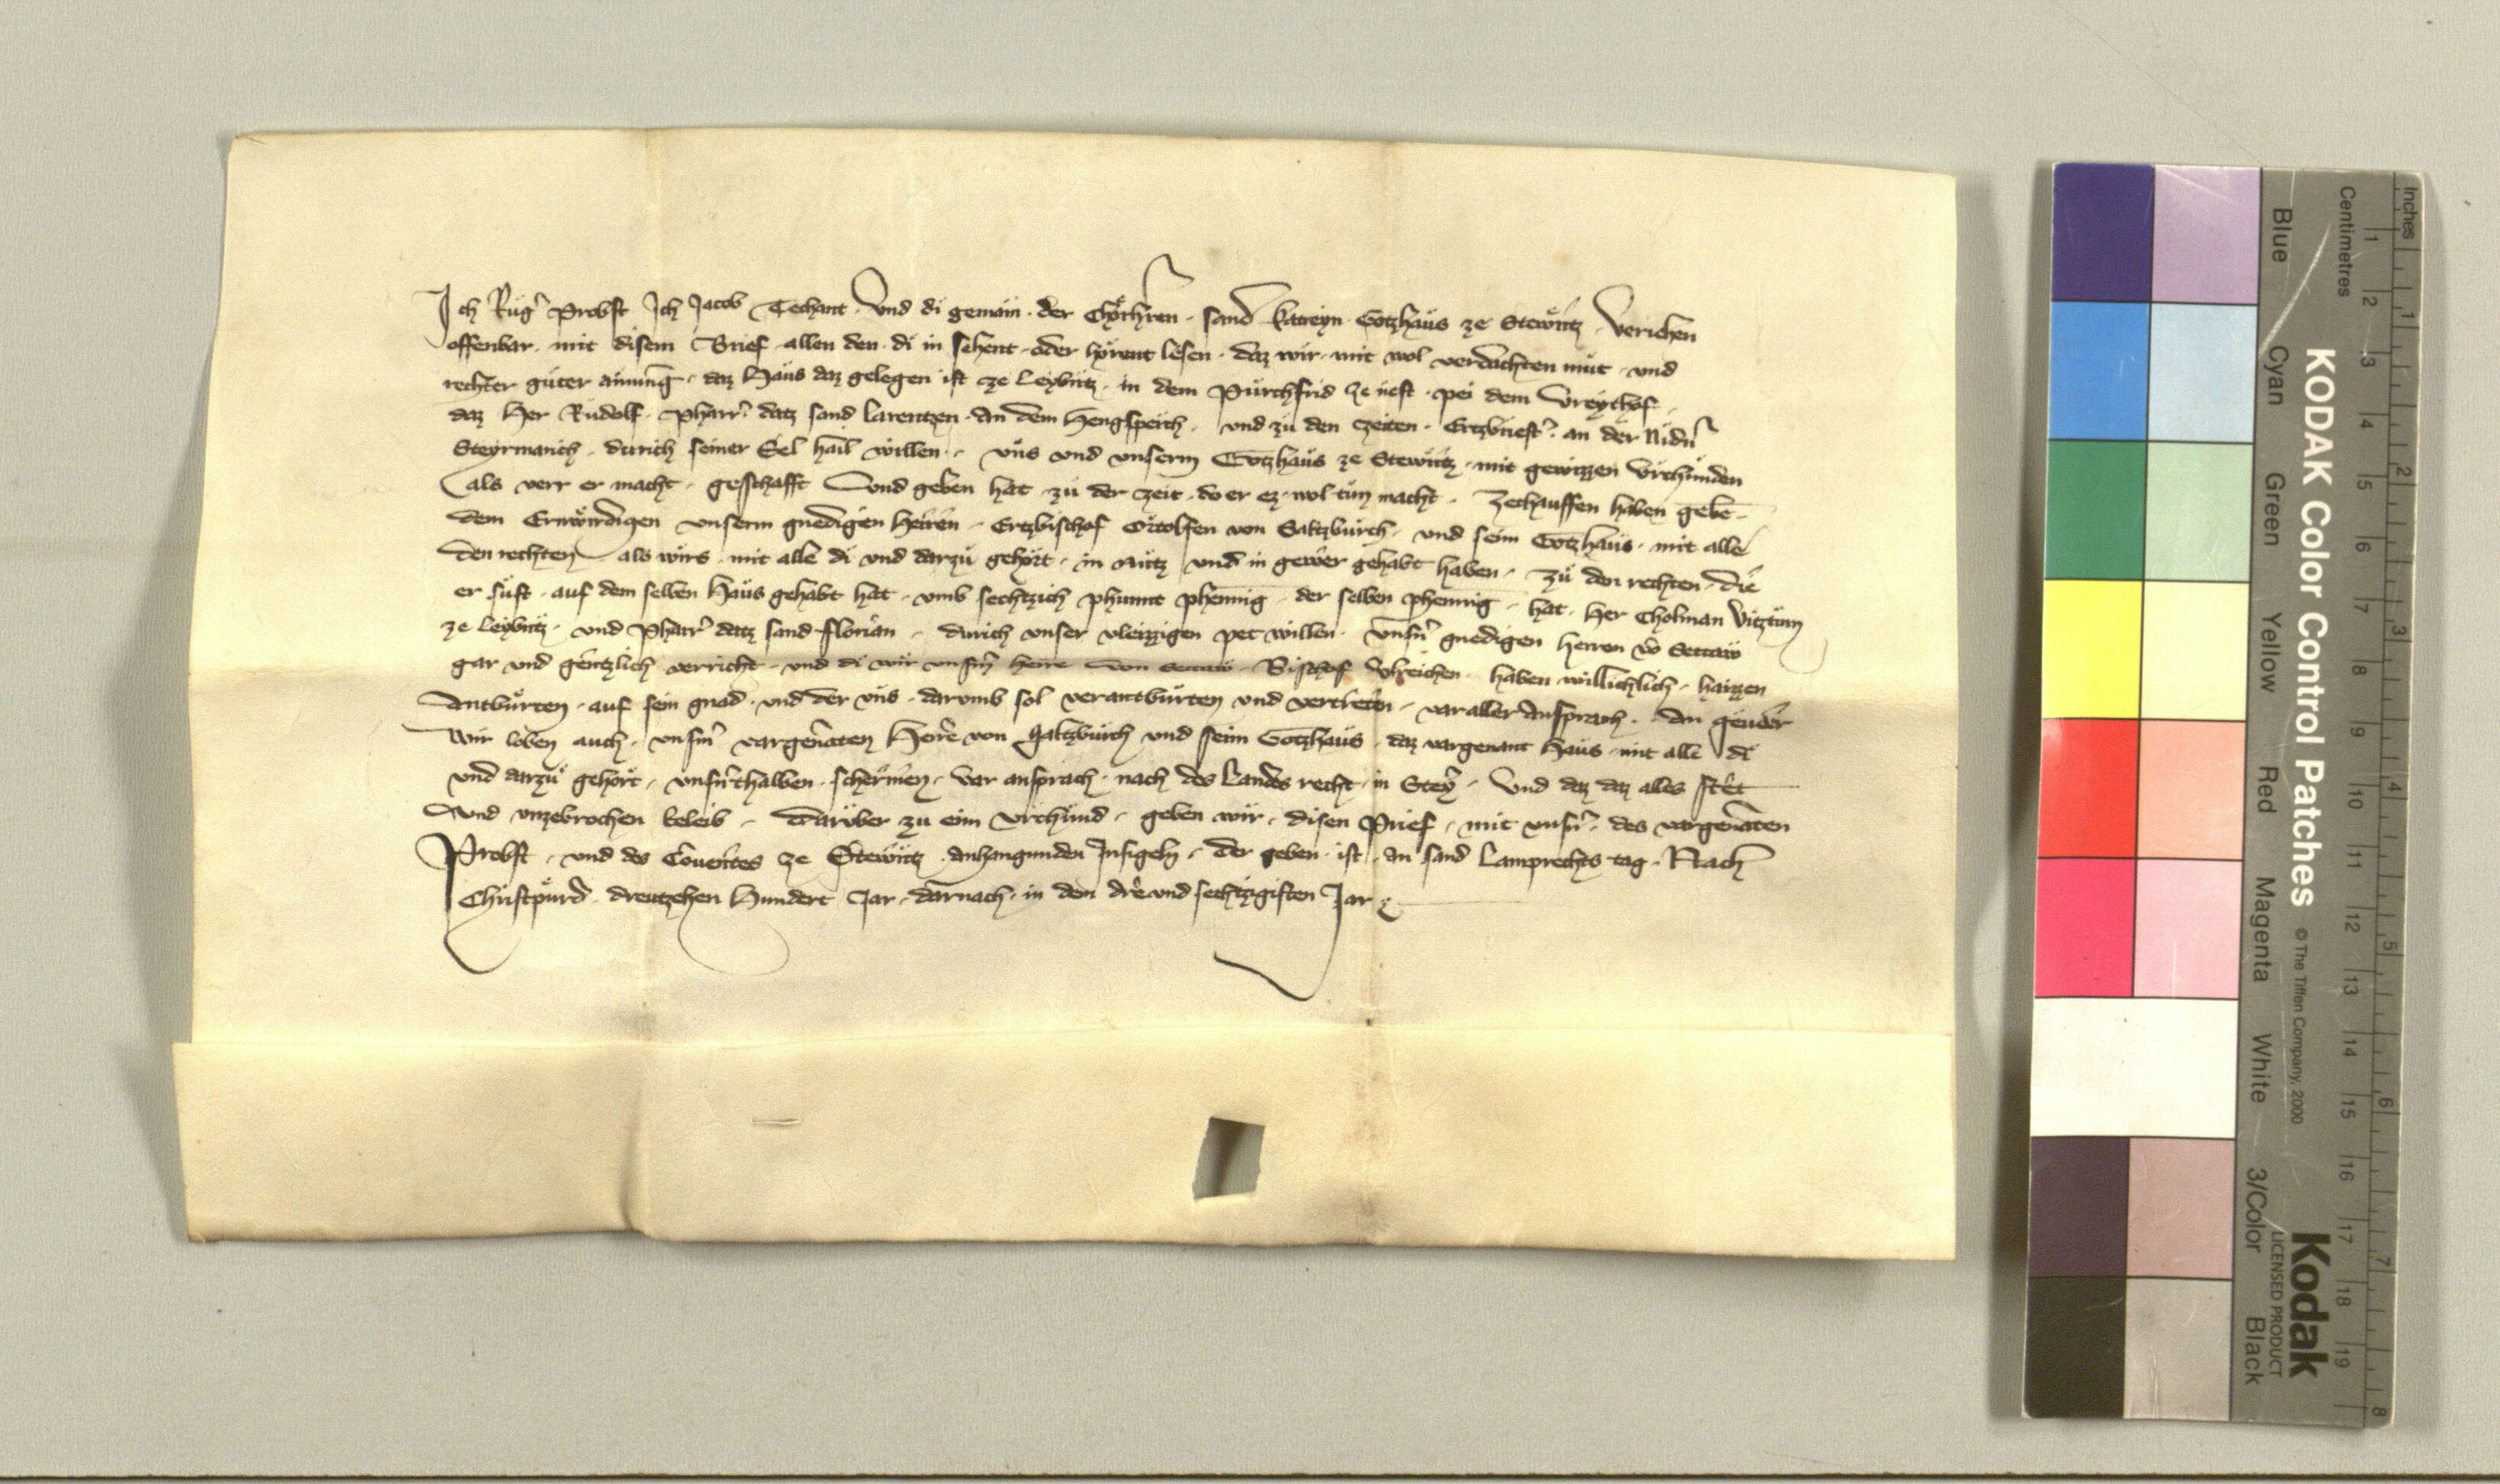 Ich Rug̓ Probst Ich Jacob Techant · Und di gemain · der Chorhren · sand Katreyn Gotzhaus ze Stewntz · Veriehen
offenbar · mit disem Brief · allen den · di in sehent · oder hörent lesen · daz wir · mit wol verdachten mut · und
rechter guter ainung · daz Haus daz gelegen ist ze Leybntz · in dem Purchfrid ze nest · pei dem Vreythof ·
daz Her Rudolf · Pharr̓ datz sand Larentzen · An dem Hengsperch · und zu den zeiten · Ertzbriest̓ · an der Nidn̓
Steyrmarich · durich seiner Sel hail willen · uns und unserm Gotzhaus ze Stewntz · mit gewizzen Vrchunden
als verr er macht · geschafft Vnd geben hat · zu der zeit · do er ez · wol tun macht · Zechauffen haben gebē
dem Erwirdigen unserm gnedigen Herren · Ertzbischof Ortolfen von Saltzburch · und seim Gotzhaus · mit allē
den rechten als wirs · mit allē di und darzu gehört · in nutz und in gewer gehabt haben · Zu den rechten · die
er sust · auf dem selben Haus gehabt hat · umb sechtzich phunt phennig · der selben phennig · hat · Her Cholman Vitztum
ze Leybntz · und Pharr̓ datz sand Florian · durich unser vleizzigen pet willen · vnsn̓ gnedigen herren vō Seccaw
gar und gentzlich verricht · und di wir unsm̓ herrē von Seccaw Bischof Vlreichen · haben willichlich · haizzen
Antwurten · auf sein gnad · und der uns · darumb sol verantwurten und vertreten · var aller Ansprach ·
Wir loben auch · vnsm̓ vargenāten Herrē von Saltzburch und seim Gotzhaus · daz vargenant Haus · mit allē di
und darzu gehört · vnsn̓thalben · schermen · var ansprach · nach des Landes recht · in Steyr̓ · Und daz daz alles stet
Und unzebrochen beleib · Darüber zu eim vrchund · geben wir · disen Prief · mit vnsn̓ · des vargenāten
Probst · und des Conventes ze Stewntz · anhangunden Insigeln · der geben · ist · an sand Lamprechts tag · Nach
Christpurd · dreutzehen Hundert Jar · darnach · in dem dreund sechtzigisten Jar
KODAK Color Control Patches
© The Tiffen Company, 2000
Kodak
LICENSED PRODUCT
Blue Cyan Green Yellow Red Magenta White 3/Color Black
Inches 1 2 3 4 5 6 7 8
Centimetres 1 2 3 4 5 6 7 8 9 10 11 12 13 14 15 16 17 18 19